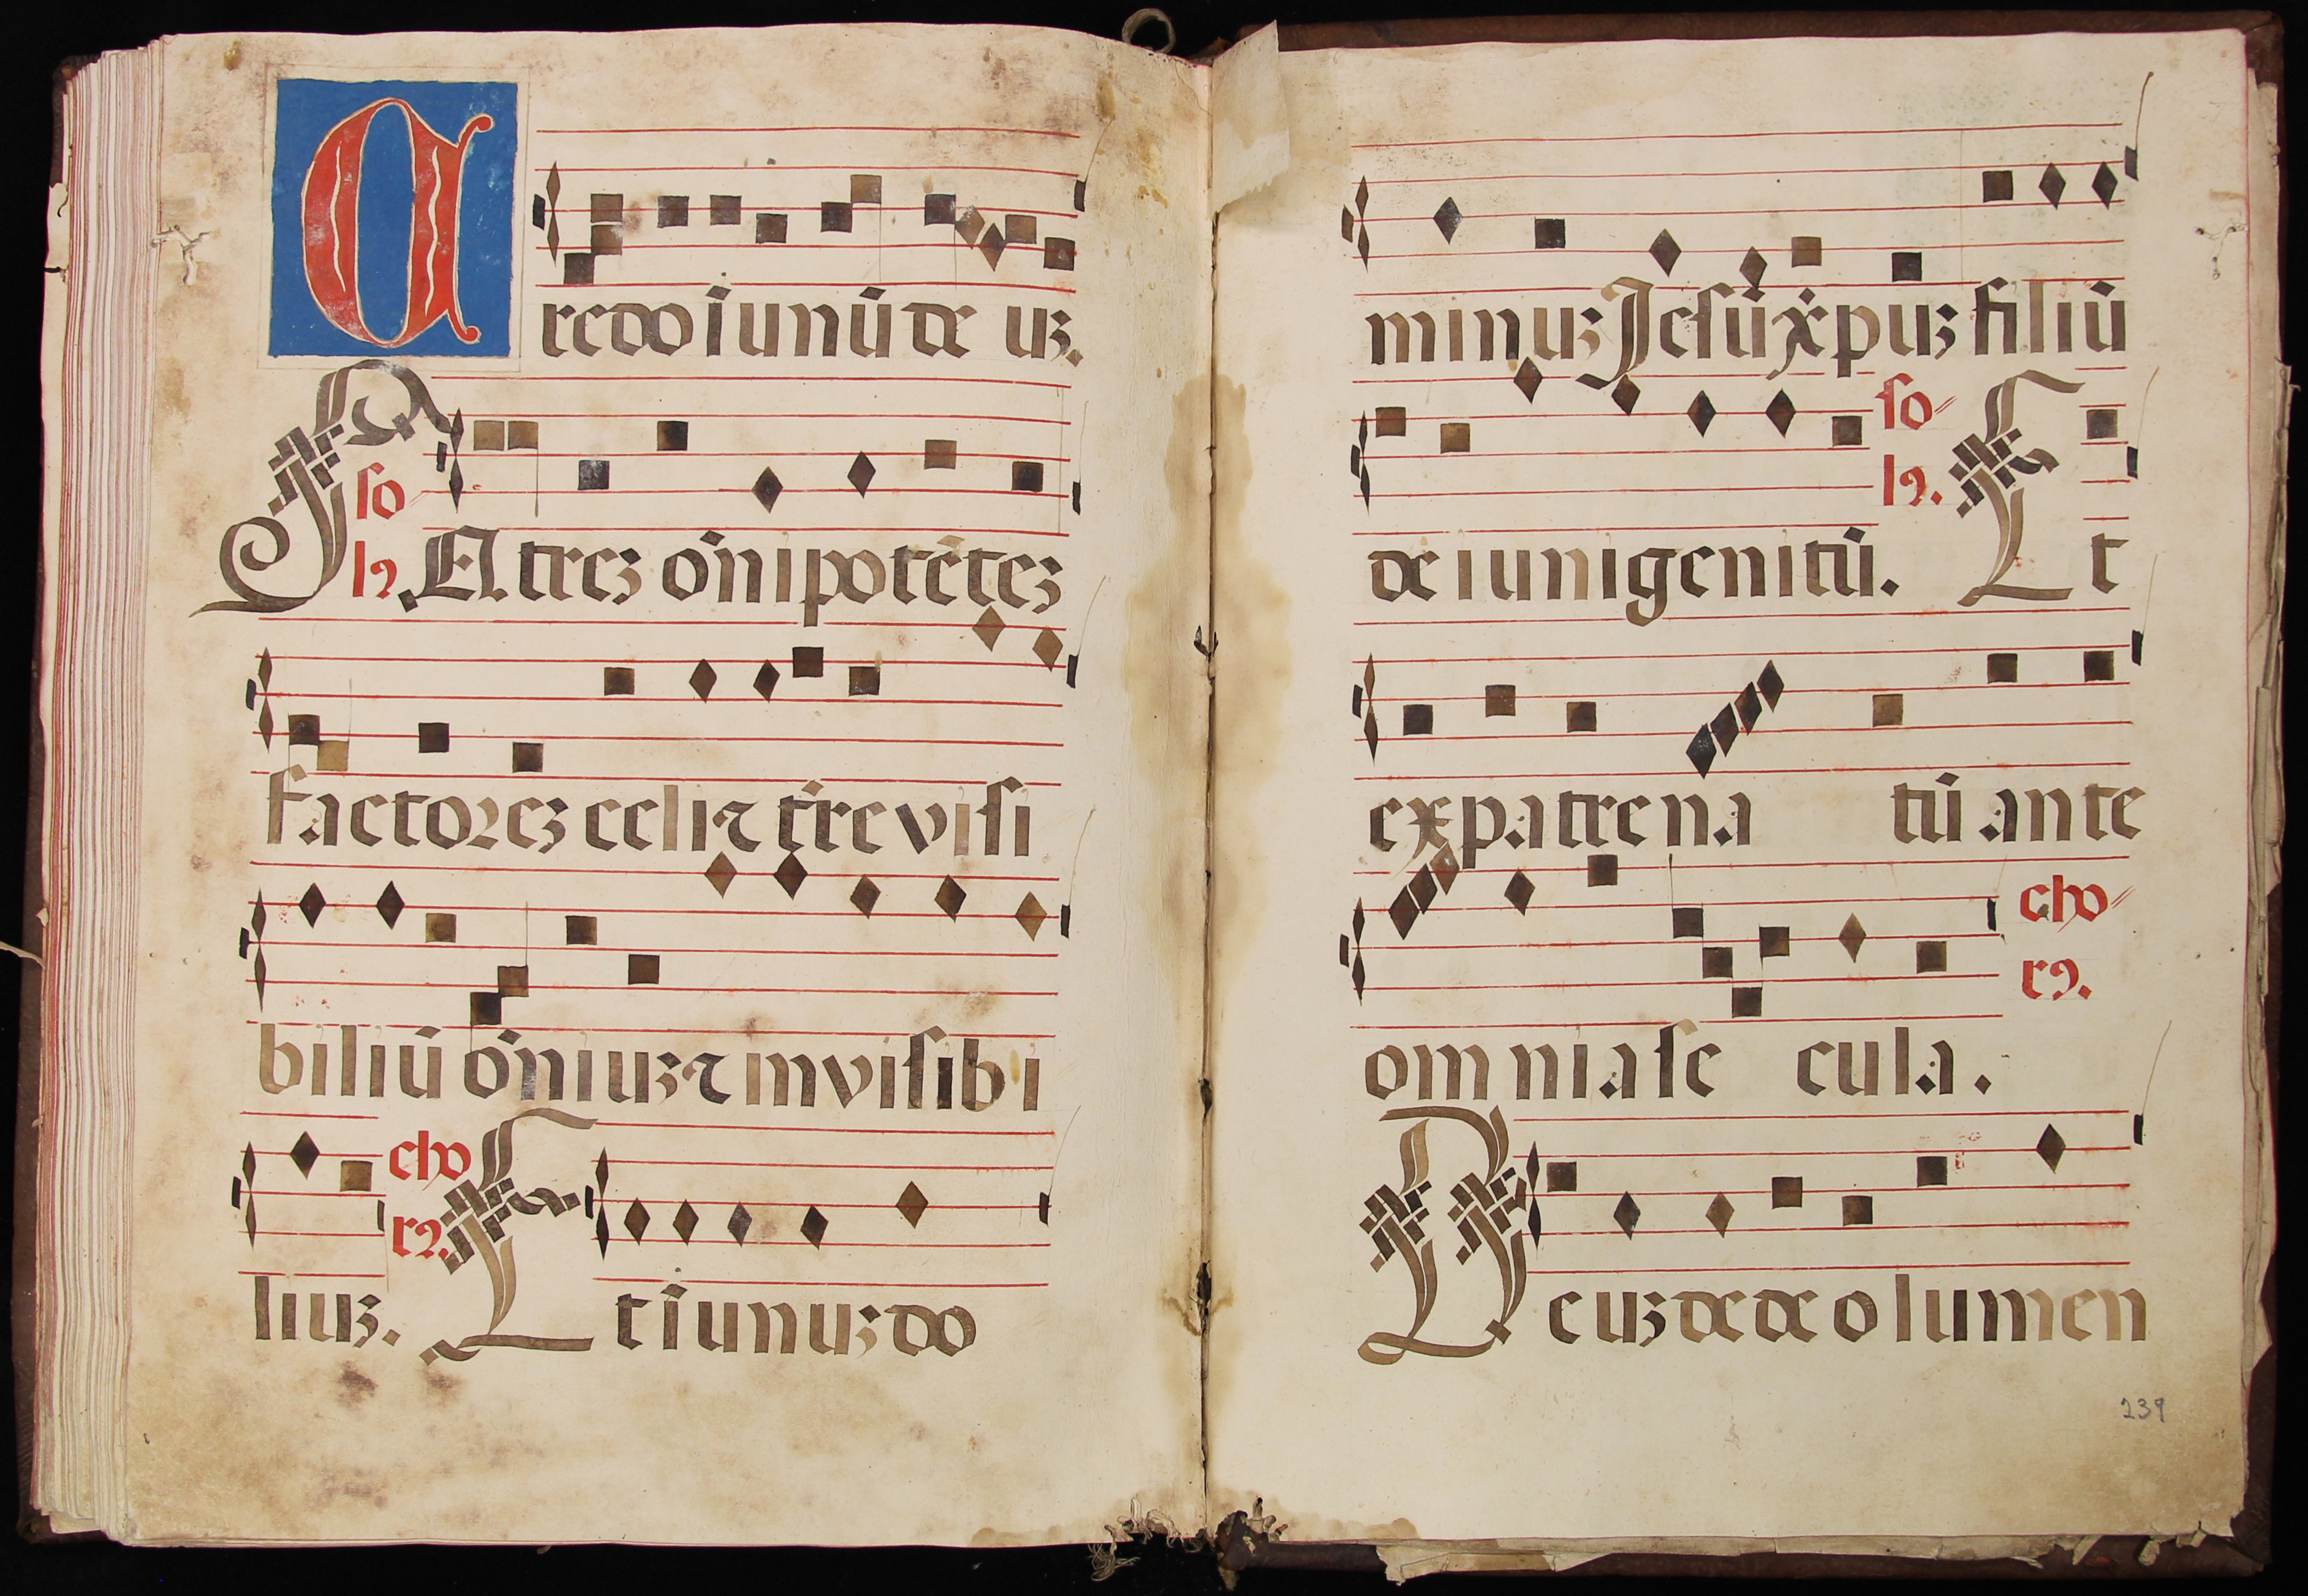 Credo i unū de uz.
so
lꝰ. PAtrez oñipotētez
factorez celi ⁊ t̄re visi
biliū oñiuz ⁊ invisibi
liuz. cho
rꝰ. Et i unuz do
minuz Jesū xp̄uz filiū
dei unigenitū. so
lꝰ. Et
ex patre natū ante
omnia secula. cho
rꝰ.
Deuz de deo lumen
239